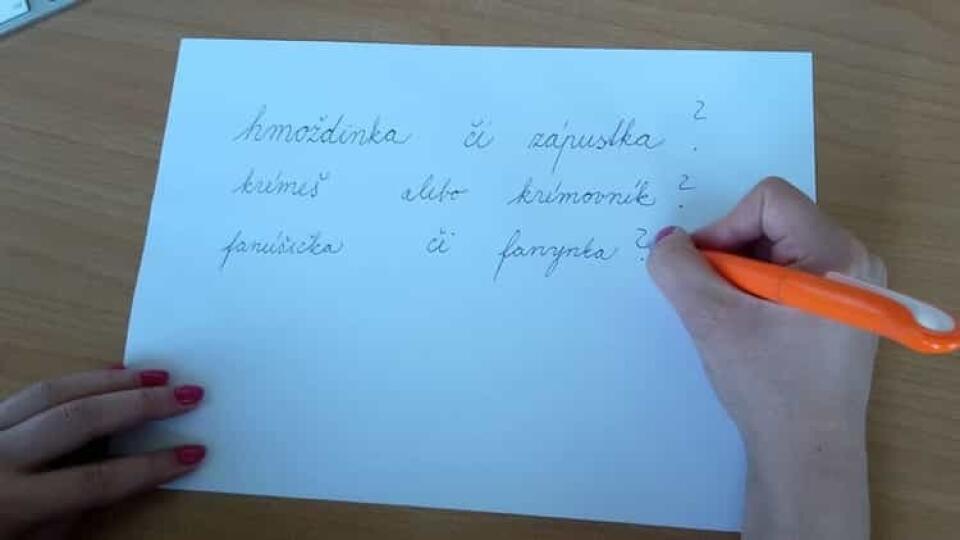 hmoždinka či zápustka ?
krémeš alebo krémovník ?
fanúšička či fanynka ?